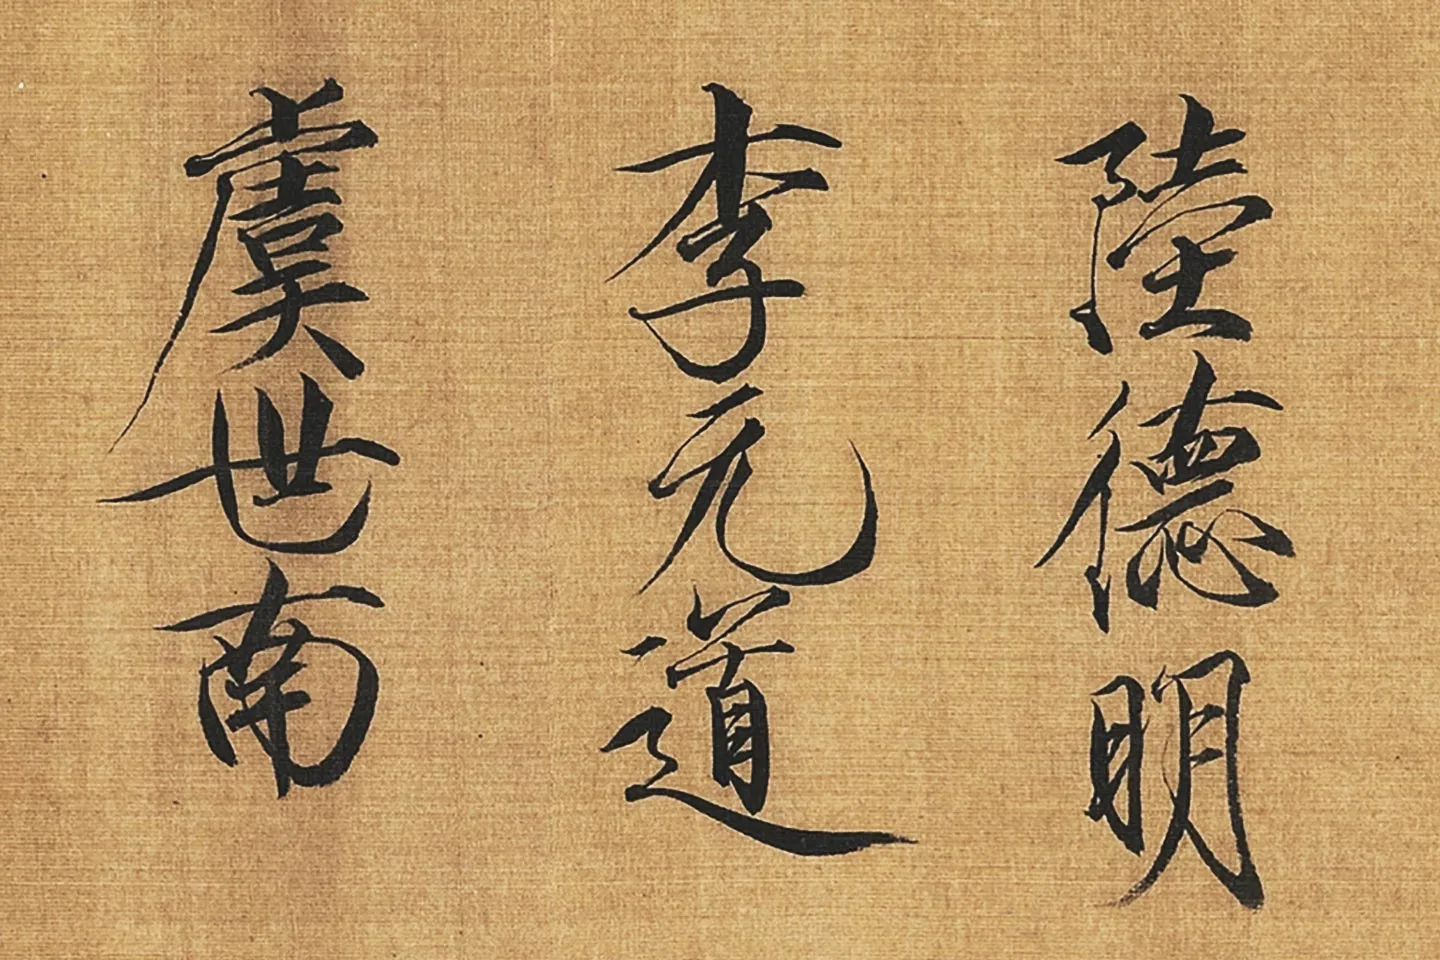 陸德明
李元道
虞世南